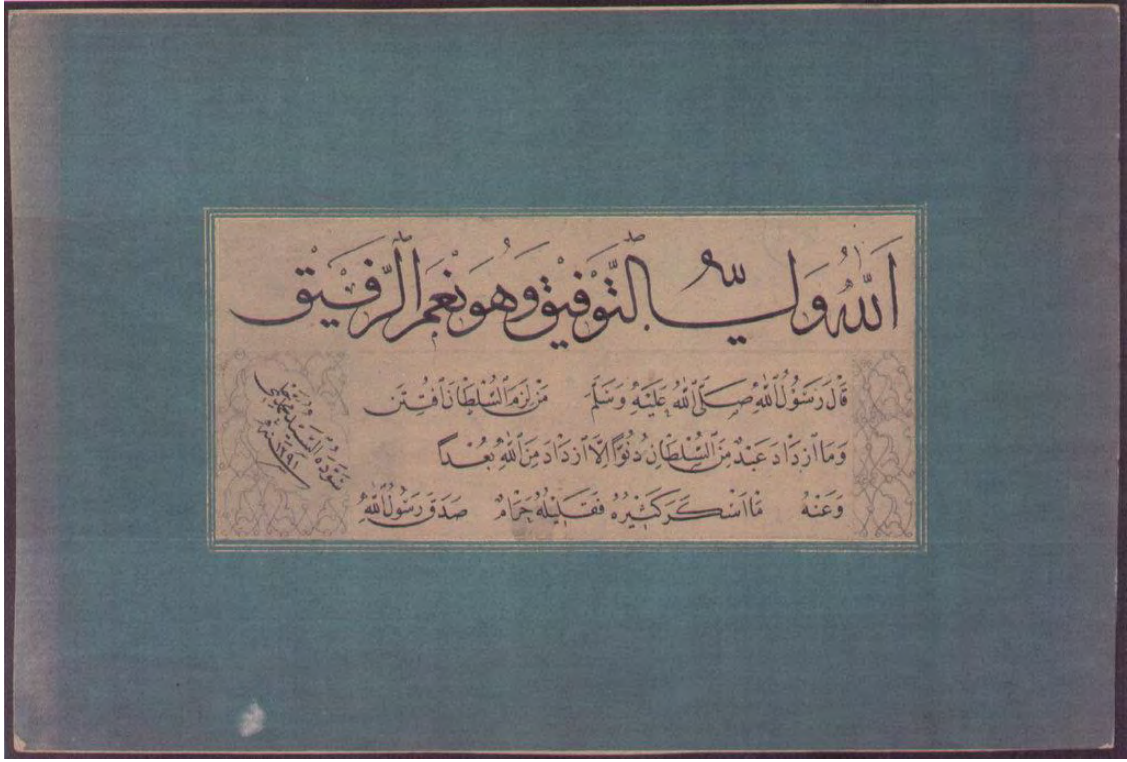 اَللّٰهُ وَلِيُّ التَّوْفِيْقِ وَهُوَ نِعْمَ الرَّفِيْقِ
قَالَ رَسُوْلُ اللّٰهِ صَلَّى اللّٰهُ عَلَيْهِ وَسَلَّمَ مَنْ لَزِمَ السُّلْطَانَ افْتُتِنَ
وَمَا ازْدَادَ عَبْدٌ مِنَ السُّلْطَانِ دُنُوًّا اِلَّا ازْدَادَ مِنَ اللّٰهِ بُعْدًا
وَعَنْهُ مَا اَسْكَرَ كَثِيْرُهُ فَقَلِيْلُهُ حَرَامٌ صَدَقَ رَسُوْلُ اللّٰهِ
سَوَّدَهُ السَّيِّد
١٢٩١